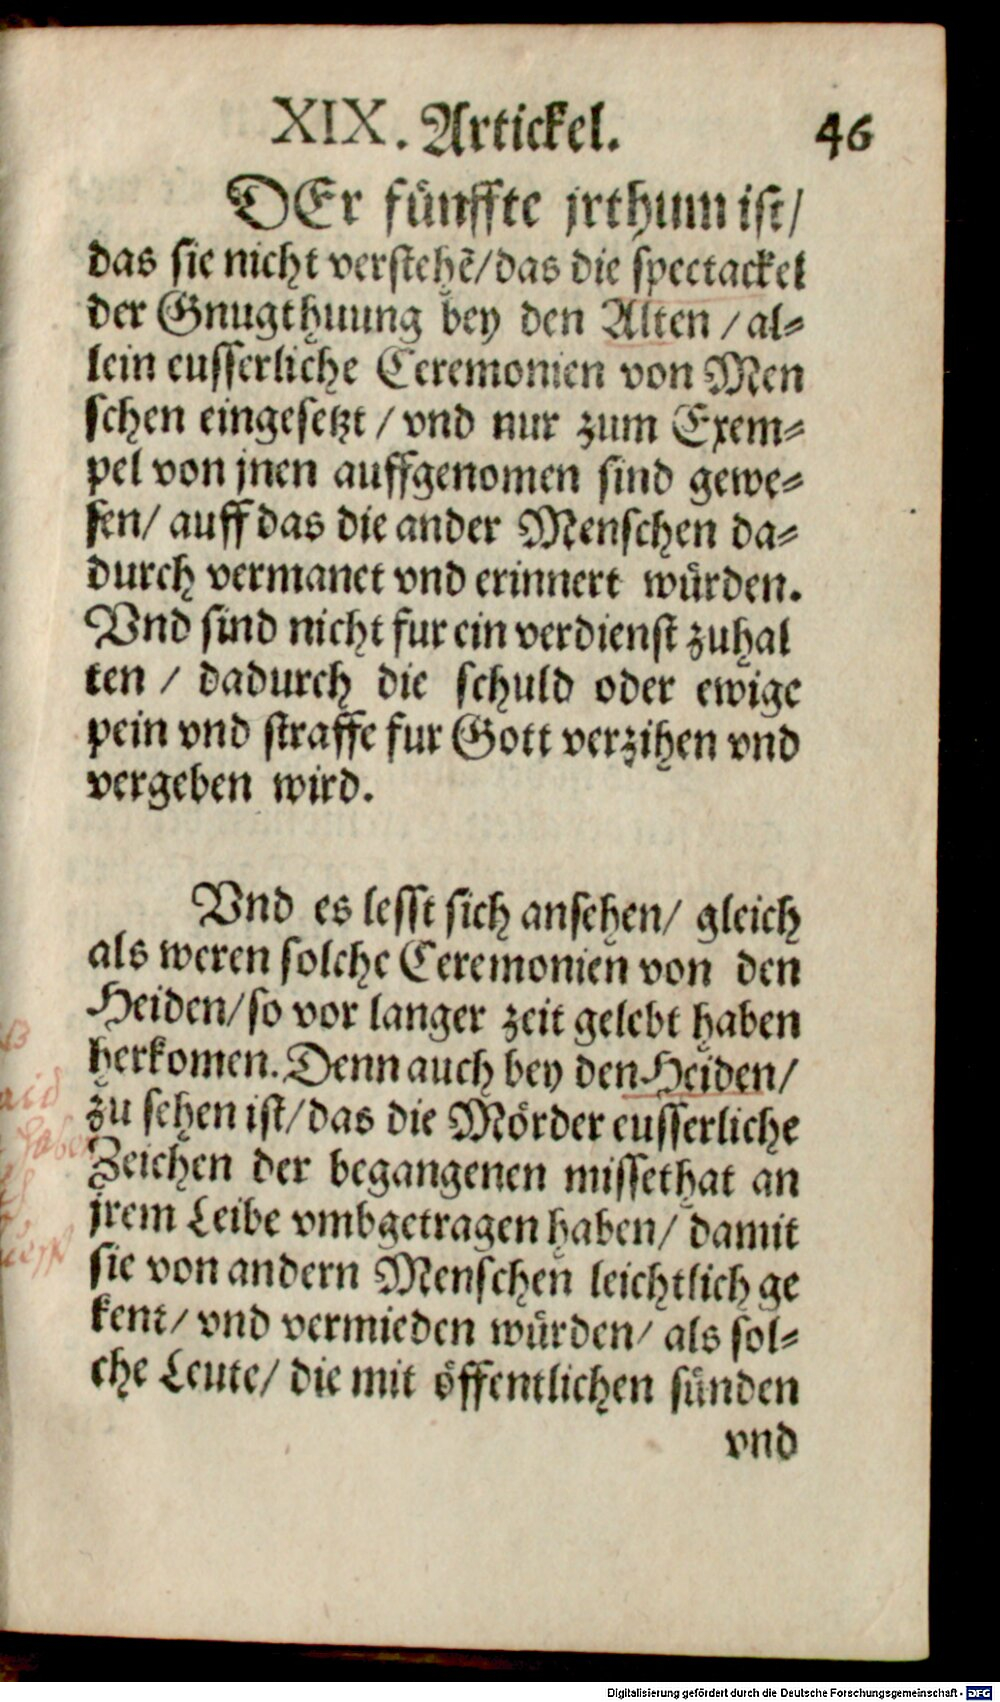 XIX. Artickel. 46
DEr fünffte jrthum ist/
das sie nicht verstehē/das die spectackel
der Gnugthuung bey den Alten / al⸗
lein eusserliche Ceremonien von Men
schen eingesetzt / vnd nur zum Exem⸗
pel von jnen auffgenomen sind gewe⸗
sen/ auff das die ander Menschen da⸗
durch vermanet vnd erinnert würden.
Vnd sind nicht fur ein verdienst zuhal
ten / dadurch die schuld oder ewige
pein vnd straffe fur Gott verzihen vnd
vergeben wird.
Vnd es lesst sich ansehen/ gleich
als weren solche Ceremonien von den
Heiden/so vor langer zeit gelebt haben
herkomen. Denn auch bey den Heiden/
zu sehen ist/das die Mörder eusserliche
Zeichen der begangenen missethat an
jrem Leibe vmbgetragen haben/ damit
sie von andern Menschen leichtlich ge
kent/ vnd vermieden würden/ als sol⸗
che Leute/ die mit öffentlichen sünden
vnd
Digitalisierung gefördert durch die Deutsche Forschungsgemeinschaft - DFG